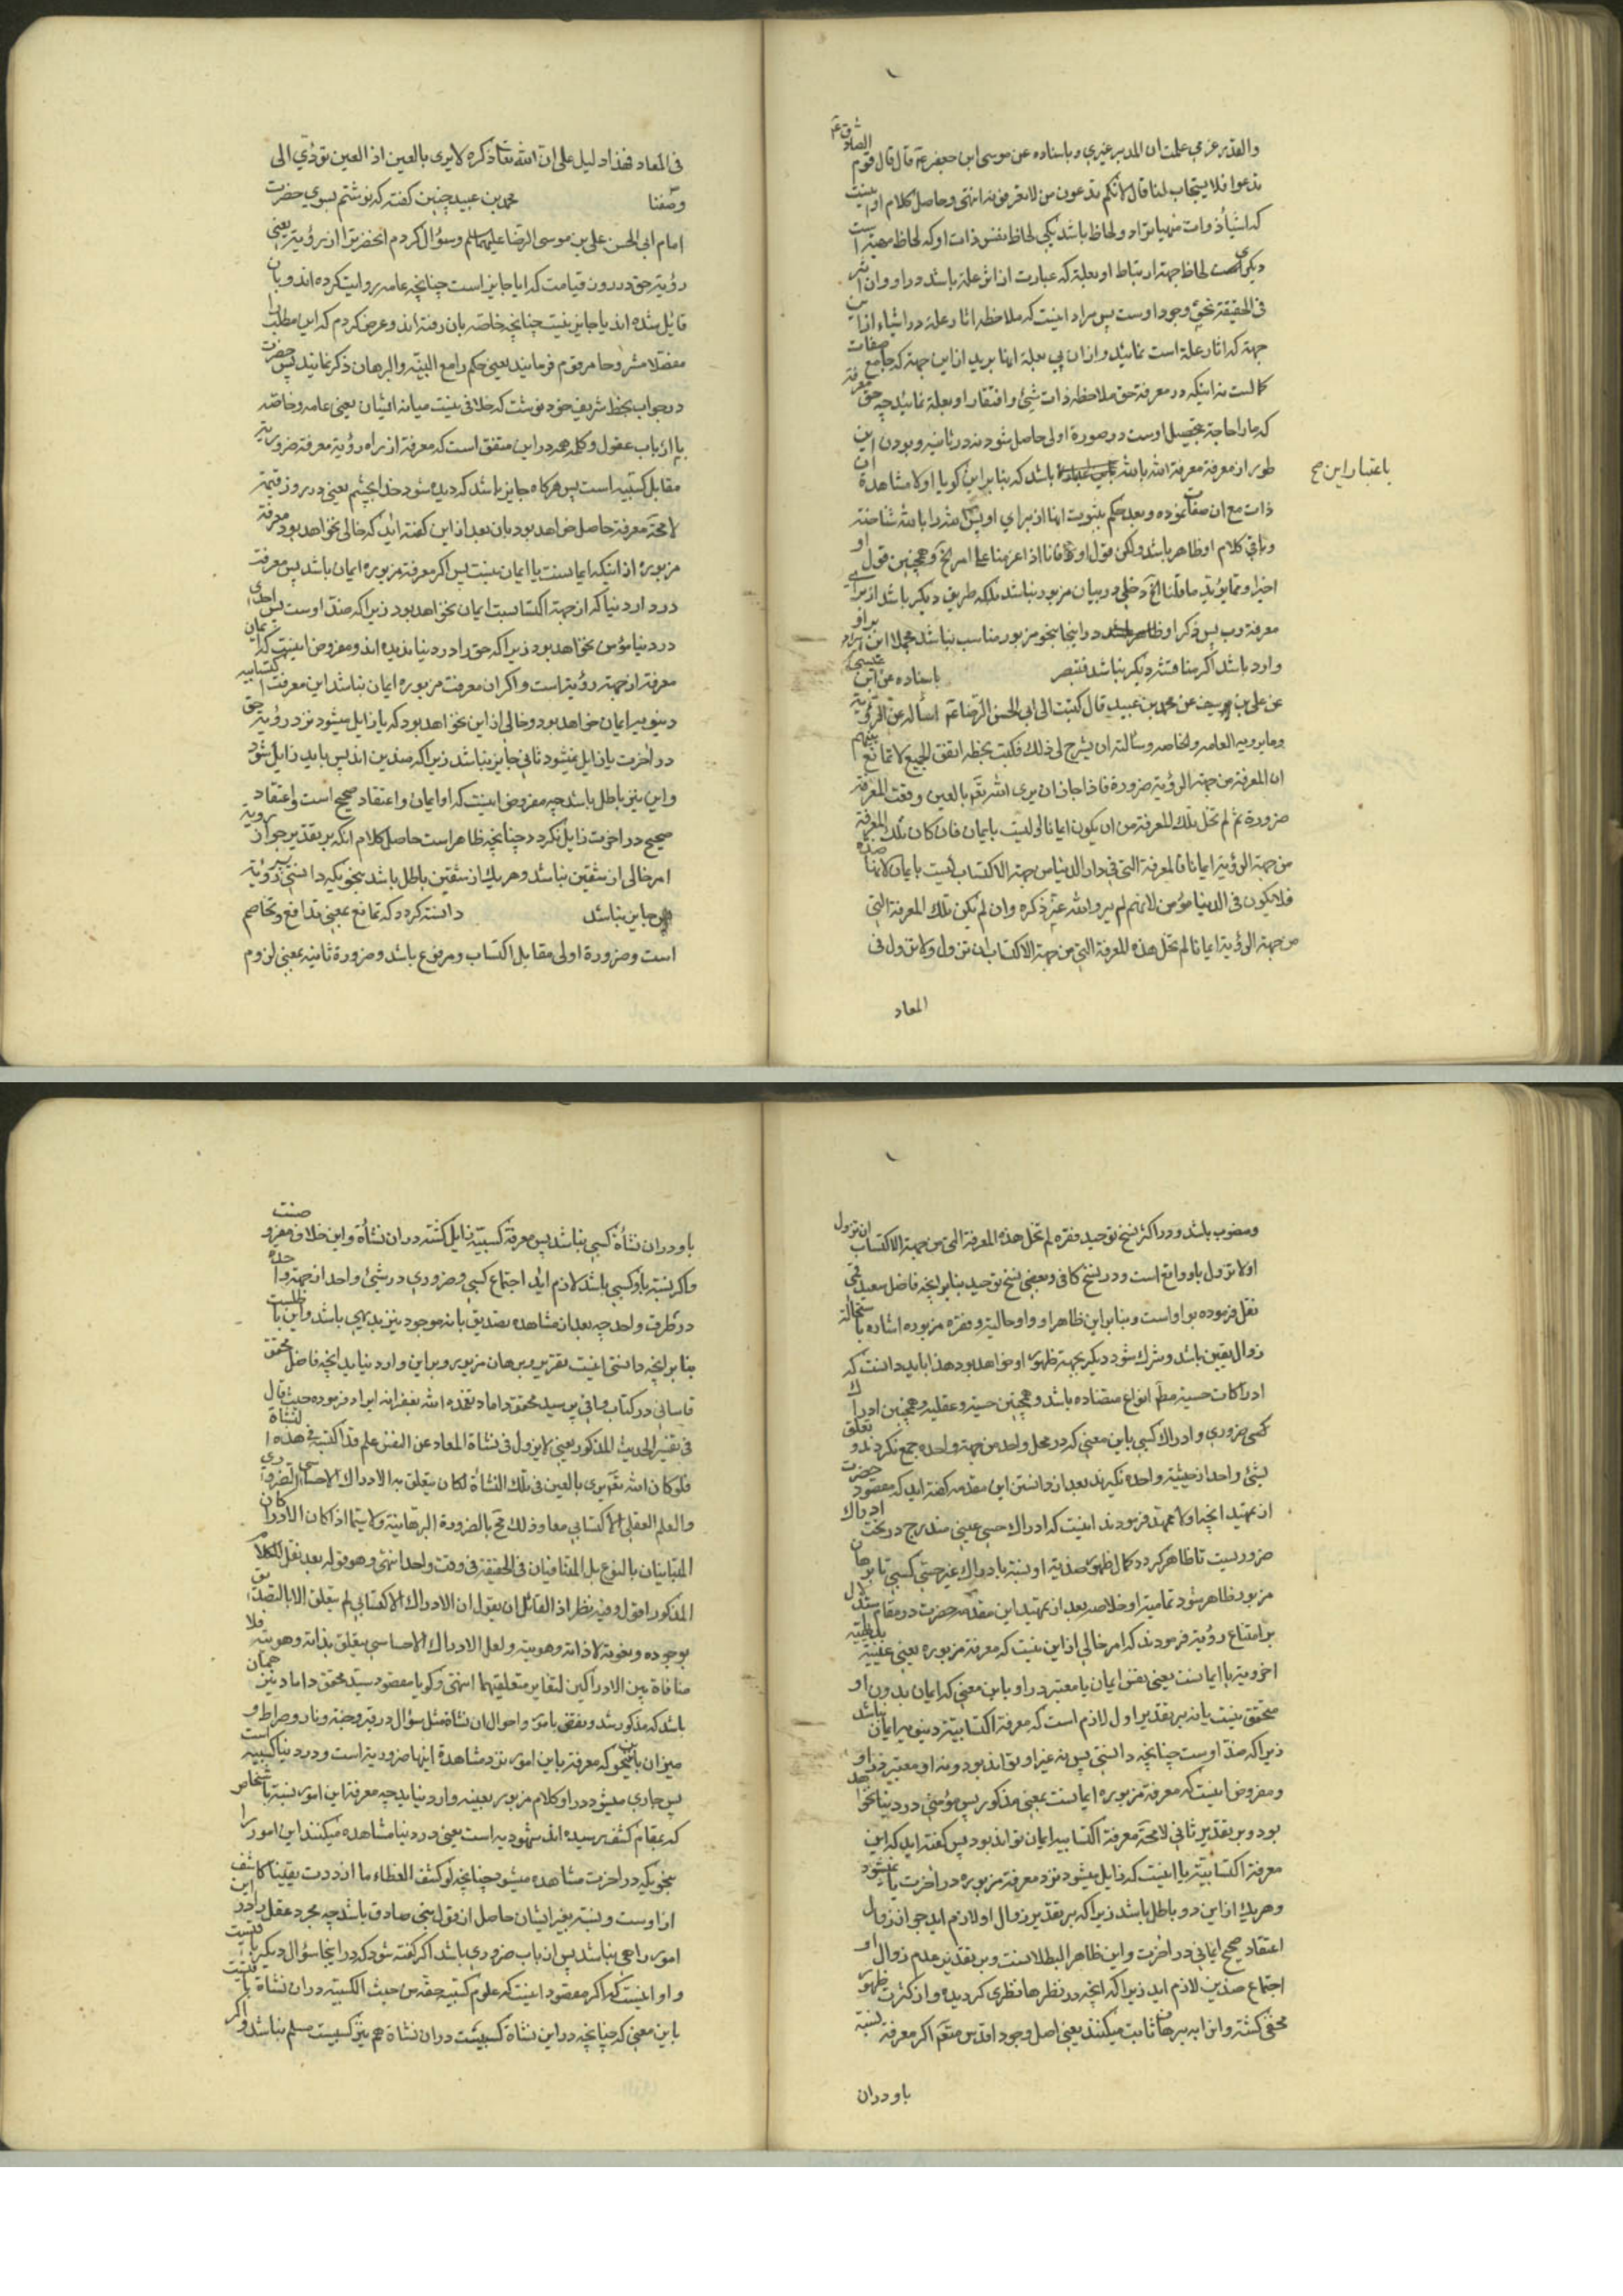 والقدر عزمي علمت ان المدبر غيري وباسناده عن موسى ابن جعفر ع قال قال قوم الصادق ع
ندعوا فلا يستجاب لنا قال لانكم تدعون من لا تعرفونه انتهى وحاصل كلام او اينست
كه اشيا ذوات مهيات را دو لحاظ باشد يكى لحاظ نفس ذات او كه لحاظ مهيت است
ديكرى لحاظ جهة ارتباط او بعلة كه عبارت از اثر علة باشد در او وان اثر
فى الحقيقة نحو وجود اوست پس مراد اينست كه ملاحظه اثار علة در اشياء از اين
جهة كه اثار علة است نمايند و از ان پى بعلة انها بريد از اين جهة كه جامع صفات
كمالست نه اينكه در معرفة حق ملاحظه ذات شئ وافتقار او بعلة نمايند چه معرفة حق
كه ما را حاجة بتحصيل اوست در صورة اولى حاصل شود نه در ثانيه وبودن اين
طور از معرفة معرفة الله بالله باشد كه بنابر اين كويا اولا مشاهدة ان
باعتبار اين صح
ذات مع ان صفات نموده وبعد حكم بثبوت انها از براى او پس الله را بالله شناخته
وباقى كلام او ظاهر باشد ولكن قول او فانا اذا عزمنا على امر الخ وهمچنين قول او
اخيرا ومما يؤيد ما قلنا الخ دخلى در بيان مزبور نباشد بلكه طريق ديكر باشد از براى
معرفة رب پس ذكر او در اينجا بنحو مزبور مناسب نباشد مجملا اين ايراد بر او
وارد باشد اكر مناقشه ديكر نباشد فتبصر باسناده عن ابن عيسى
عن على بن سيف عن محمد بن عبيد قال كتبت الى ابى الحسن الرضا ع اسأله عن الرؤية
وما يرويه العامه والخاصه وسألته ان يشرح لى ذلك فكتب بخطه اتفق الجميع لا تمانع بينهم
ان المعرفة من جهة الرؤية ضرورة فاذا جاز ان يرى الله تعم بالعين وقعت المعرفة
ضرورة ثم لم تخل تلك المعرفة من ان يكون ايمانا او ليست بايمان فان كان تلك المعرفة
من جهة الرؤية ايمانا فالمعرفة التى فى دار الدنيا من جهة الاكتساب ليست بايمان لانها ضده
فلا يكون فى الدنيا مؤمن لانهم لم يروا الله عز ذكره وان لم يكن تلك المعرفة التى
من جهة الرؤية ايمانا لم تخل هذه المعرفة التى من جهة الاكتساب ان تزول ولا تزول فى
المعاد
فى المعاد فهذا دليل على ان الله تعا ذكره لا يرى بالعين اذ العين تؤدى الى
وصفنا محمد بن عبيد چنين كفته كه نوشتم بسوى حضرت
امام ابى الحسن على بن موسى الرضا عليهما سلم وسؤال كردم انحضرت را از رؤية يعنى
رؤية حق در روز قيامت كه ايا جايز است چنانچه عامه روايت كرده اند وبان
قايل شده اند يا جايز نيست چنانچه خاصه بان رفته اند وعرض كردم كه اين مطلب را
مفصلا مشروحا مرقوم فرمايند يعنى حكم را مع البينه والبرهان ذكر نمايند پس حضرت
در جواب بخط شريف خود نوشت كه خلافى نيست ميانه ايشان يعنى عامه وخاصه
يا ارباب عقول وكلمه همه در اين متفق است كه معرفة از راه رؤية معرفة ضروريه
مقابل كسبيه است پس هر كاه جايز باشد كه ديده شود خدا بچشم يعنى در روز قيمة
لا محة معرفة حاصل خواهد بود بان بعد از اين كفته ايد كه خالى نخواهد بود معرفة
مزبوره از اينكه ايمانست يا ايمان نيست پس اكر معرفة مزبوره ايمان باشد پس معرفت
در دار دنيا كه از جهة اكتسابست ايمان نخواهد بود زيرا كه ضد اوست پس احدى
در دنيا مؤمن نخواهد بود زيرا كه حق را در دنيا نديده اند ومفروض اينست كه ايمان
معرفة از جهة رؤية است واكر ان معرفت مزبوره ايمان نباشد اين معرفت اكتسابيه
دنيويه ايمان خواهد بود وخالى از اين نخواهد بود كه يا زايل ميشود نزد رؤية حق
در اخرت يا زايل نميشود ثانى جايز نباشد زيرا كه ضدين اند پس بايد زايل شود
واين نيز باطل باشد چه مفروض اينست كه او ايمان واعتقاد صحيح است واعتقاد
صحيح در اخرت زايل نكردد چنانچه ظاهر است حاصل كلام انكه بر تقدير جواز رؤية
امر خالى از شقين نباشد وهر يك از شقين باطل باشد بنحويكه دانستى پس رؤية
جايز نباشد دانسته كردد كه تمانع بمعنى تدافع وتخاصم
است وضرورة اولى مقابل اكتساب ومرفوع باشد وضرورة ثانيه بمعنى لزوم
ومنصوب باشد ودر اكثر نسخ توحيد فقره لم تخل هذه المعرفة التى من جهة الاكتساب ان تزول
او لا تزول باو واقع است ودر نسخ كافى وبعضى نسخ توحيد بنا بر انچه فاضل سعيد قمى
نقل فرموده بواو است وبنابر اين ظاهر او واو حاليه وفقره مزبوره اشاره باستحالة
زوال يقين باشد ومترك شود ديكر بجهة ظهور او خواهد بود هذا بايد دانست كه
ادراكات حسيه مطم انواع متضاده باشد وهمچنين حسيه وعقليه وهمچنين ادراك
كسى ضرورى وادراك كسبى باين معنى كه در محل واحد من جهة واحده جمع نكردند وتعلق
بشئ واحد از حيثية واحده نكيرند بعد از دانستن اين مقدمه كفته ايد كه مقصود حضرت
از تمهيد انچه اولا تمهيد فرمودند اينست كه ادراك حسى عينى مندرج در تحت ادراك
ضروريست تا ظاهر كردد كمال ظهور ضدية او نسبة بادراك غير حسى كسبى تا برهان
مزبور ظاهر شود تماميت او خلاصه بعد از تمهيد اين مقدمه حضرت در مقام استدلال
بر امتناع رؤية فرمودند كه امر خالى از اين نيست كه معرفة مزبوره يعنى عينية
اخرويه يا ايمانست يعنى نفس ايمان يا معتبر در او باين معنى كه ايمان بدون او
متحقق نيست يا نه بر تقدير اول لازم است كه معرفة اكتسابية دنيويه ايمان نباشد
زيرا كه ضد اوست چنانچه دانستى پس نه عين او تواند بود ونه او معتبر در او
ومفروض اينست كه معرفة مزبوره ايمانست بمعنى مذكور پس مؤمنى در دنيا نخواهد
بود وبر تقدير ثانى لا محة معرفة اكتسابيه ايمان تواند بود پس كفته ايد كه اين
معرفة اكتسابية يا اينست كه زايل ميشود نزد معرفة مزبوره در اخرت يا نميشود
وهر يك از اين دو باطل باشد زيرا كه بر تقدير زوال او لازم ايد جواز زوال
اعتقاد صحيح ايمانى در اخرت واين ظاهر البطلانست وبر تقدير عدم زوال او
اجتماع ضدين لازم ايد زيرا كه انچه در نظرها نظرى كرديده واز كثرت ظهور
مخفى كشته واو را به برهان ثابت ميكنند يعنى اصل وجود اقدس متعم اكر معرفة نسبة
باو در ان
باو در ان نشأة كسبى نباشد پس معرفة كسبيه زايل كشته در ان نشأة واين خلاف مفروضست
واكر نسبة باو كسبى باشد لازم ايد اجتماع كسبى وضرورى در شئ واحد از جهة واحده
در ظرف واحد چه بعد از مشاهده تصديق بانه موجود نيز بديهى باشد واين باطلست
بنا بر انچه دانستى اينست تقرير برهان مزبور وبر اين وارد نيايد انچه فاضل محقق
قاسانى در كتاب وافى بر سيد محقق داماد تغمده الله بغفرانه ايراد فرموده حيث قال
فى تفسير الحديث المذكور يعنى لا يزول فى نشاة المعاد عن النفس علم قد اكتسبه فى هذه النشاة
فلو كان الله تعم يرى بالعين فى تلك النشأة لكان يتعلق به الادراك الاحساسى الضرورى
والعلم العقلى الاكتسابى معا وذلك مح بالضرورة البرهانية ولا سيما اذا كان الادراكان
المتباينان بالنوع بل المتنافيان فى الحقيقة فى وقت واحد انتهى وهو قوله بعد نقل الكلام
المذكور اقول وفيه نظر اذ القائل ان يقول ان الادراك الاكتسابى لم يتعلق الا بالتصديق
بوجوده ونعوته لا ذاته وهويته ولعل الادراك الاحساسى يتعلق بذاته وهويته فلا
منافاة بين الادراكين لتغاير متعلقيهما انتهى وكويا مقصود سيد محقق داماد نيز همان
باشد كه مذكور شد ونقض بامور واحوال ان نشاة مثل سؤال در قبر وجنة ونار وصراط و
ميزان باين نحو كه معرفة باين امور نزد مشاهدة اينها ضروريه است ودر دنيا كسبيه است
پس جارى ميشود در او كلام مزبور بعينه وارد نيايد چه معرفة اين امور نسبة باشخاص
كه بمقام كشف رسيده اند شهوديه است يعنى در دنيا مشاهده ميكنند اين امور را
بنحويكه در اخرت مشاهده ميشود چنانچه لو كشف الغطاء ما ازددت يقينا كاشف
از اوست ونسبة بغير ايشان حاصل از قول نبى صادق باشد چه مجرد عقل را در اين
امور راهى نباشد پس از باب ضرورى باشد اكر كفته شود كه در اينجا سؤال ديكر باقيست
واو اينست كه اكر مقصود اينست كه علوم كسبيه حقه من حيث الكسبية در ان نشاة باقيست
باين معنى كه چنانچه در اين نشاة كسبيست در ان نشاة هم نيز كسبيست مسلم نباشد واكر